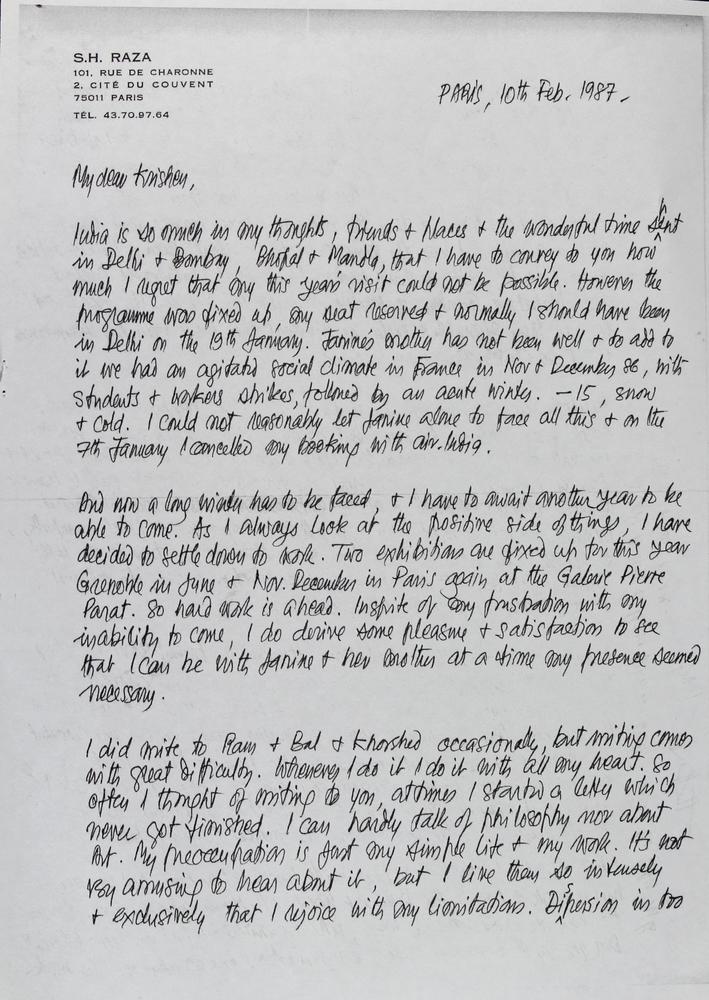 S.H. RAZA
101, RUE DE CHARONNE
2, CITÉ DU COUVENT
75011 PARIS
TÉL. 43.70.97.64
PARIS, 10th Feb. 1987.
My dear Krishen,
India is so much in my thoughts, friends & places & the wonderful time spent
in Delhi & Bombay, Bhopal & Mandla, that I have to convey to you how
much I regret that my this year's visit could not be possible. However the
programme was fixed up, my seat reserved & normally I should have been
in Delhi on the 19th January. Janine's mother has not been well & to add to
it we had an agitated social climate in France in Nov & December 86, with
students & workers strikes, followed by an acute winter. -15, snow
& cold. I could not reasonably let Janine alone to face all this & on the
7th January I cancelled my booking with air. India.
And now a long winter has to be faced, & I have to await another year to be
able to come. As I always look at the positive side of things, I have
decided to settle down to work. Two exhibitions are fixed up for this year
Grenoble in June & Nov. December in Paris again at the Galerie Pierre
Parat. So hard work is ahead. Inspite of my frustration with my
inability to come, I do derive some pleasure & satisfaction to see
that I can be with Janine & her mother at a time my presence seemed
necessary.
I did write to Ram & Bal & Khorshed occasionally, but writing comes
with great difficulty. Whenever I do it I do it with all my heart. So
often I thought of writing to you, at times I started a letter which
never got finished. I can hardly talk of philosophy nor about
Art. My preoccupation is just my simple life & my work. It's not
very amusing to hear about it, but I live them so intensely
& exclusively that I rejoice with my limitations. Dispersion in too